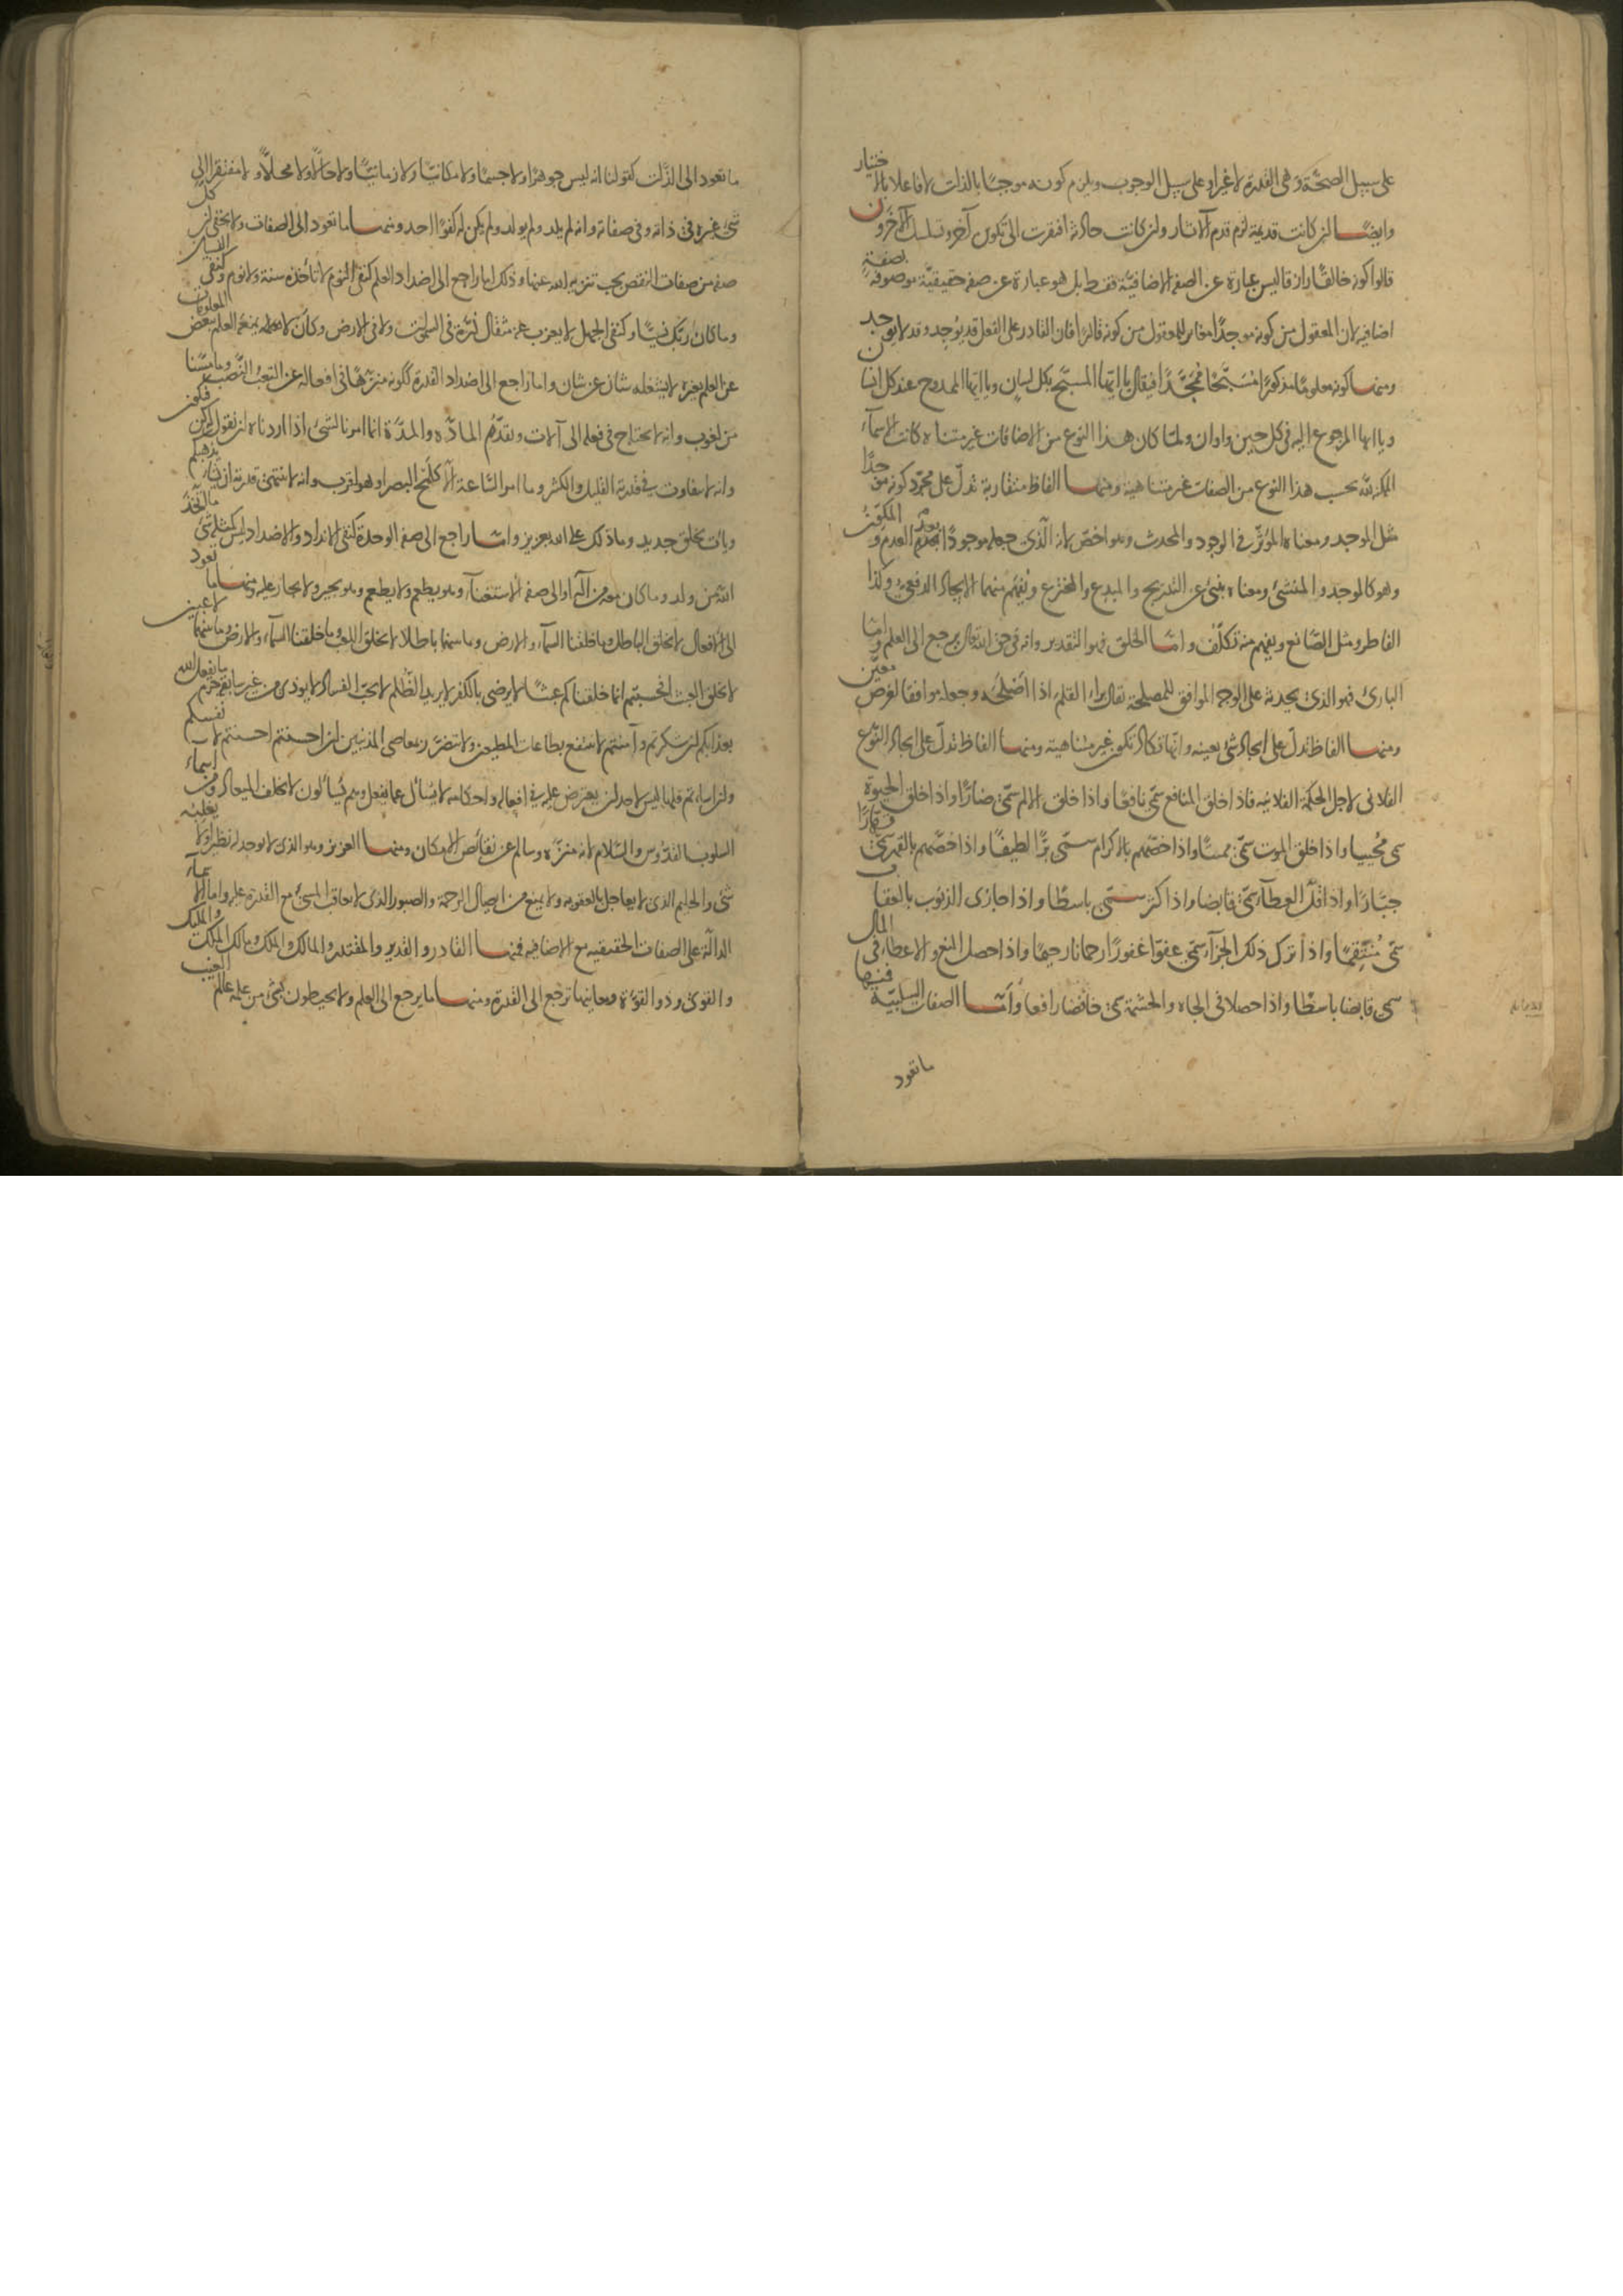 على سبيل الصحة وهى القدرة لا غير او على سبيل الوجوب ويلزم كونه موجبًا بالذات لا فاعلا بالاختيار
وايضًا ان كانت قديمة لزم قدم الآثار وان كانت حادثة افتقرت الى تكوين آخر وتسلسل الآخرون
قالوا كونه خالقًا رازقا ليس عبارة عن الصفة الاضافيّة فقط بل هو عبارة عن صفة حقيقيّة موصوفة بصفةٍ
اضافية لان المعقول من كونه موجدًا مغاير للمعقول من كونه قادرًا فان القادر على الفعل قد يُوجِد وقد لا يوجد
ومنها كونه معلومًا مذكورًا مُسَبَّحًا مُمَجَّدًا فيقال يا ايها المسبَّح بكل لسان ويا ايها الممدوح عند كل انسان
ويا ايها المرجوع اليه فى كل حين واوان ولما كان هذا النوع من الاضافات غير متناه كانت الاسماء
الممكنة لله بحسب هذا النوع من الصفات غير متناهية ومنها الفاظ متقاربة تدلّ على مجرّد كونه موجدًا
مثل الموجد ومعناه المؤثّر فى الوجود والمحدث وهو اخصّ لانه الّذى جعله موجودًا بعد العدم والمكوّن
وهو كالموجد والمنشئ ومعناه ينبئ عن التدريج والمبدع والمخترع ويُفهَم منهما الايجاد الدفعىّ وكذا
الفاطر ومثل الصّانع ويفهم منه تكلّف وامّا الخلق فهو التقدير وانه فى حق الله تعالى يرجع الى العلم وامّا
البارئ فهو الذى يحدثه على الوجه الموافق للمصلحة يقال براء القلم اذا اصلحَه وجعله موافقا لغرض معيّن
ومنها الفاظ تدلّ على ايجاد شئ بعينه وانّها تكاد تكون غير متناهية ومنها الفاظ تدلّ على ايجاد النّوع
الفلانى لاجل الحكمة الفلانية فاذا خلق المنافع سمّى نافعًا واذا خلق الالم سمّى ضارًّا واذا خلق الحيوة
سمى مُحيِيا واذا خلق الموت سمّى مميتًا واذا خصّهم بالاكرام سمّى برًّا لطيفًا واذا خصّهم بالقهر سمّى قهّارًا
جبّارًا واذا قلّل العطاء سمّى قابضا واذا كثر سمّى باسطًا واذا جازى الذنوب بالعقاب
سمّى مُنتَقِمًا واذا ترك ذلك الجزاء سمّى عفوّا غفورًا رحمانا رحيمًا واذا حصل المنع والاعطاء فى المال
سمى قابضا باسطًا واذا حصلا فى الجاه والحشمة سمى خافضا رافعا وأمّا الصفات السلبيّة فمنها
ما تعود
ما تعود الى الذّات كقولنا انه ليس جوهرًا ولا جسمًا ولا مكانيًّا ولا زمانيًّا ولا حالًّا ولا محلاًّ ولا مفتقرا الى
شئ غيره فى ذاته وفى صفاته وانه لم يلد ولم يولد ولم يكن له كفوًا احد ومنها ما تعود الى الصفات ولا يخفى ان كل
صفة من صفات النقص يجب تنزيه الله عنها وذلك اما راجع الى اضداد العلم كنفى النوم لا تأخذه سنة ولا نوم وكنفى النسيان
وما كان ربّك نسيًّا وكنفى الجهل لا يعزب عنه مثقال ذرّة فى السموات ولا فى الارض وكأن لا يمنعه العلم ببعض المعلومات
عن العلم بغيره لا يشغله شان عن شان واما راجع الى اضداد القدرة ككونه منزّهًا فى افعاله عن التعب والنّصب وما مسّنا
من لغوب وانه لا يحتاج فى فعله الى آلات وتقدّم المادّة والمدّة انما امرنا لشئ اذا اردناه ان نقول له كن فيكون
وانه لا يتفاوت فى قدرته القليل والكثير وما امر السّاعة الّا كلمح البصر او هو اقرب وانه لا تنتهى قدرته ان يشاء يذهبكم
ويات بخلق جديد وما ذلك على الله بعزيز وامّا راجع الى صفة الوحدة كنفى الانداد والاضداد ليس كمثله شئ ما اتّخذ
اللّه من ولد وما كان معه من آله او الى صفة الاستغناء وهو يطعِم ولا يطعَم وهو يجير ولا يجار عليه ومنها ما تعود
الى الافعال لا يخلق الباطل وما خلقنا السماء والارض وما بينهما باطلا لا يخلق اللعب وما خلقنا السماء والارض وما بينهما لاعبين
لا يخلق العبث افحسبتم انما خلقناكم عبثًا لا يرضى بالكفر لا يريد الظّلم لا يحبّ الفساد لا يوذى من غير سابقة جرم ما يفعل اللّه
بعذابكم ان شكرتم وآمنتم لا ينتفع بطاعات المطيعين ولا يتضرّر بمعاصى المذنبين ان احسنتم احسنتم لانفسكم
وان اساتم فلها ليس لاحد ان يعترض عليه فى افعاله واحكامه لا يُسْأل عما يفعل وهم يُسألون لا يخلف الميعاد ومن اسماء
السلوب القدّوس والسّلام لانه منزّه وسالم عن نقائص الامكان ومنها العزيز وهو الذى لا يوجد له نظير ولا يغلبه
شئ والحليم الذى لا يعاجل بالعقوبة ولا يمنع من ايصال الرحمة والصبور الذى لا يعاقب المسئ مع القدرة عليه واما الاسماء
الدالّة على الصفات الحقيقية مع الاضافيه فمنها القادر والقدير والمقتدر والمالك والملك ومالك الملك والمليك
والقوىّ وذو القوّة ومعانيها ترجع الى القدرة ومنها ما يرجع الى العلم ولا يحيطون بشئ من علمه عالم الغيب